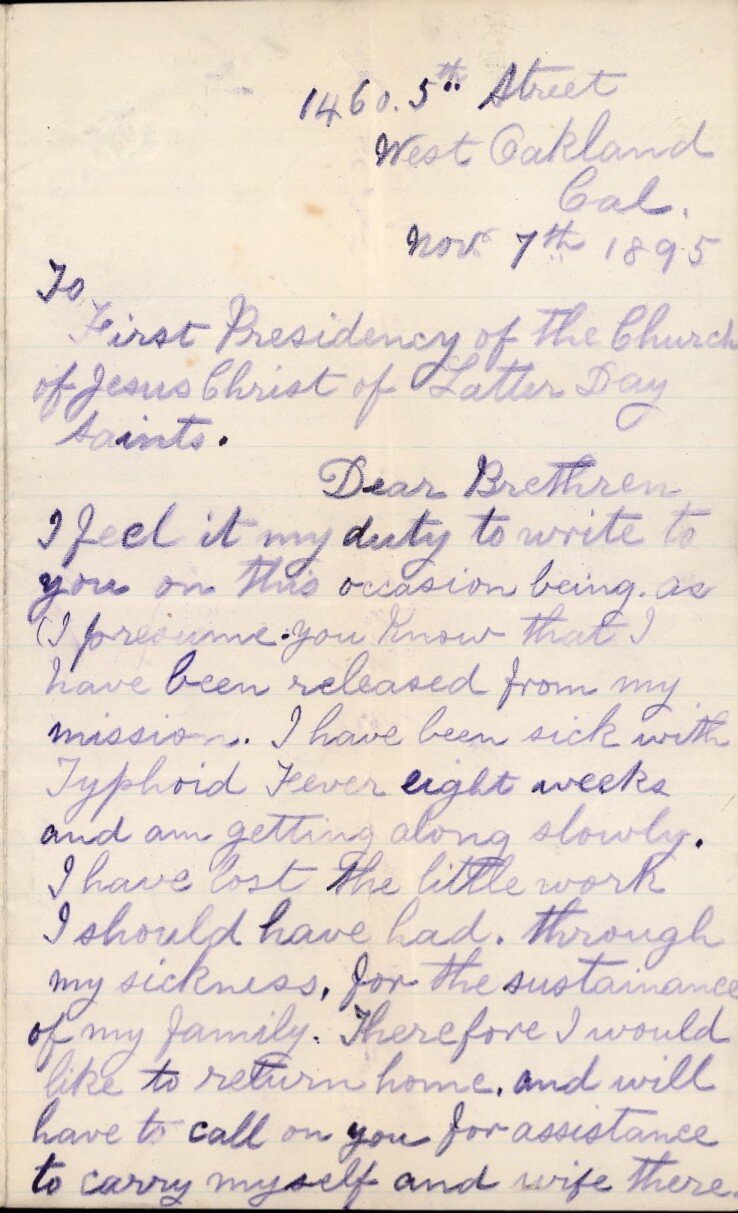 1460. 5th Street
West Oakland
Cal.
Nov. 7th 1895
To
First Presidency of the Church
of Jesus Christ of Latter Day
Saints.
Dear Brethren
I feel it my duty to write to
you on this occasion being. as
(I presume. you know that I
have been released from my
mission. I have been sick with
Typhoid Fever eight weeks
and am getting along slowly.
I have lost the little work
I should have had. through
my sickness, for the sustainance
of my family. Therefore I would
like to return home. and will
have to call on you for assistance
to carry myself and wife there.